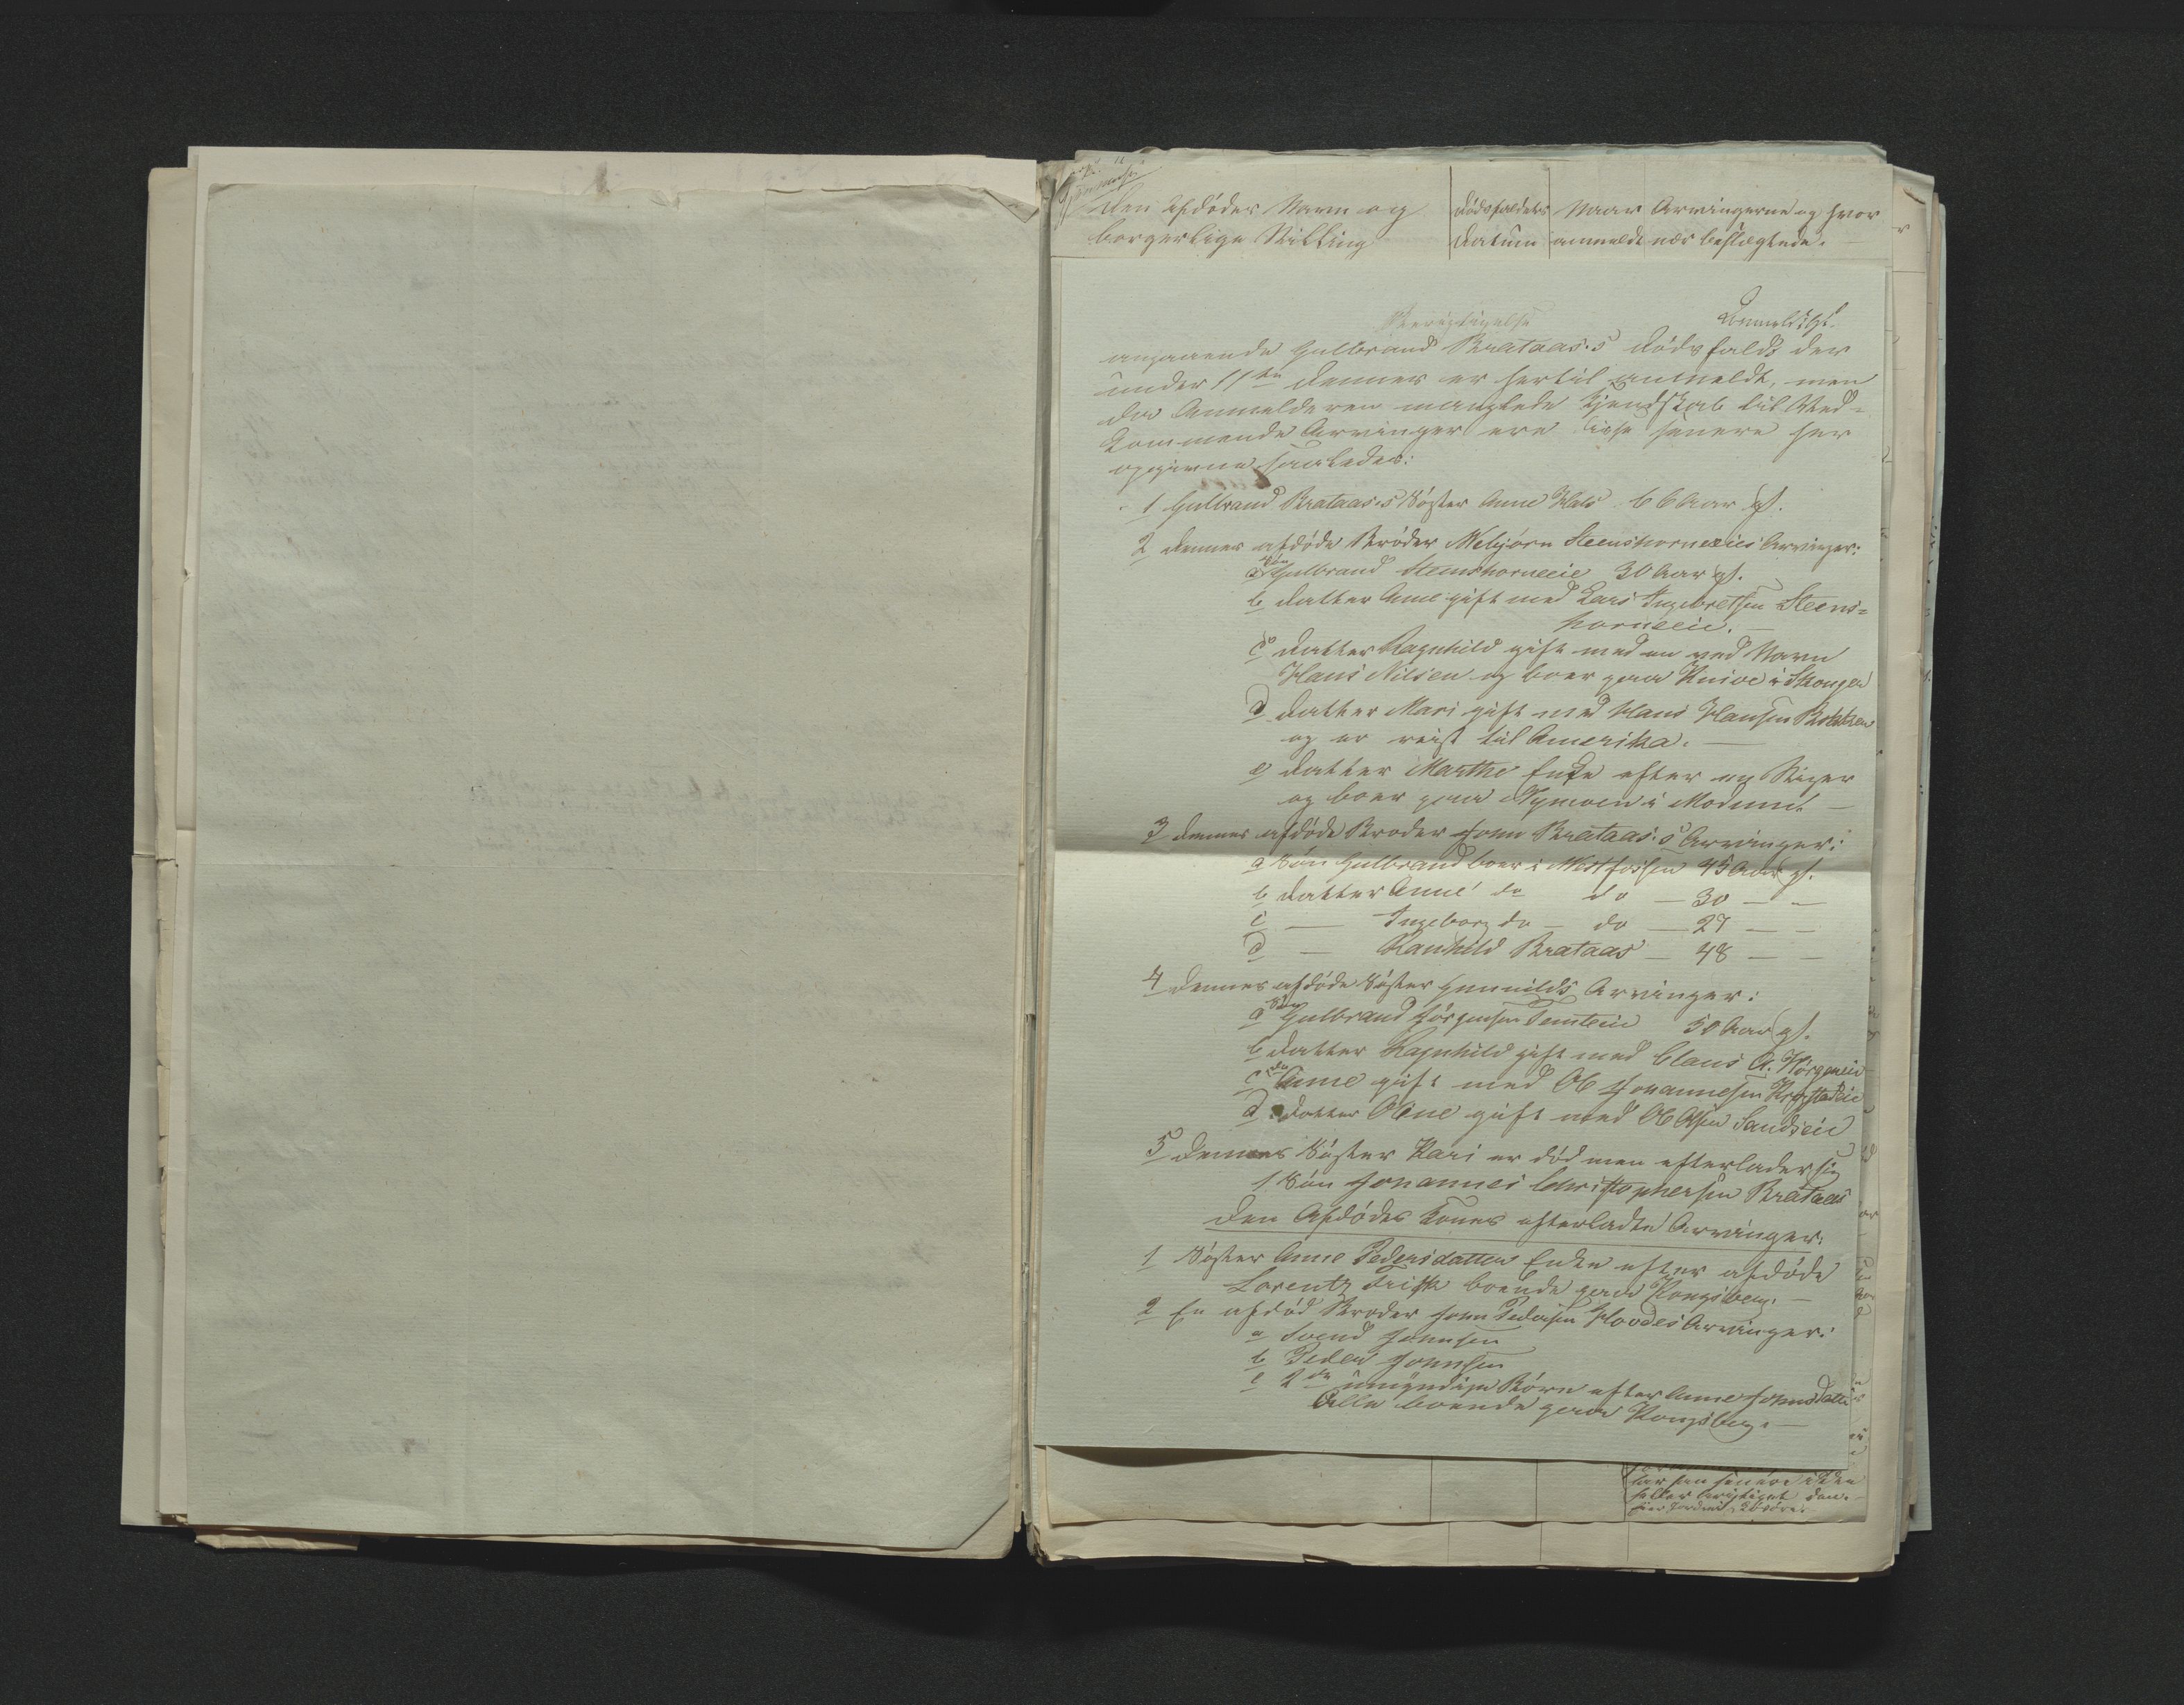 Den Afdødes Navn og
borgerlige Stilling
Dødsfaldets
Datum
Naar
anmeldt
Arvingerne og hvor
nær beslægtede.
Berigtigelse
angaaende Gulbrand Brataas.s Dødsfald der
under 11te dennes er hertil anmeldt, men
da Anmelderen manglede Kjendskab til Ved-
kommende Arvinger ere disse senere her
opgivne saaledes:
1 Gulbrand Brataas.s Søster Anne 66 Aar gl.
2 dennes afdøde Broder Mebjørn Steenshorneeies Arvinger:
a Søn Gulbrand Steenshorneeie 30 Aar gl.
b Datter Anne gift med Lars Ingebretsen Steens-
horneeie.
c Datter Ragnhild gift med en ved Navn
Hans Nilsen og boer paa i Skouger
d Datter Mari gift med Hans Hansen
og er reist til Amerika.
e Datter Marthe Enke efter en Stiger
og boer paa Nymoen i Modum
3 dennes afdøde Broder John Brataas.s Arvinger:
a Søn Gulbrand boer i Westfossen 45 Aar gl.
b Datter Anne do do 30 — —
c — Ingeborg do — do — 27 — —
d — Ranhild Brataas — 48 — —
4 dennes afdøde Søster Gunnilds Arvinger:
a Søn Gulbrand Jørgensen Temteeie 50 Aar gl.
b Datter Ragnhild gift med Claus A.
c do Anne gift med Ole Johannesen
d Datter Oline gift med Ole Olsen Sandseie
5 dennes Søster Kari er død men efterlader sig
1 Søn Johannes Christophersen Brataas
Den Afdødes Kones efterladte Arvinger:
1 Søster Anne Pedersdatter Enke efter afdøde
Lorentz boende paa Kongsberg. —
2 En afdød Broder John Pedersen Hovdes Arvinger:
a Svend Johnsen
b Peder Johnsen
c 2de umyndige Børn efter Anne Johnsdatter
Alle boende paa Kongsberg. —